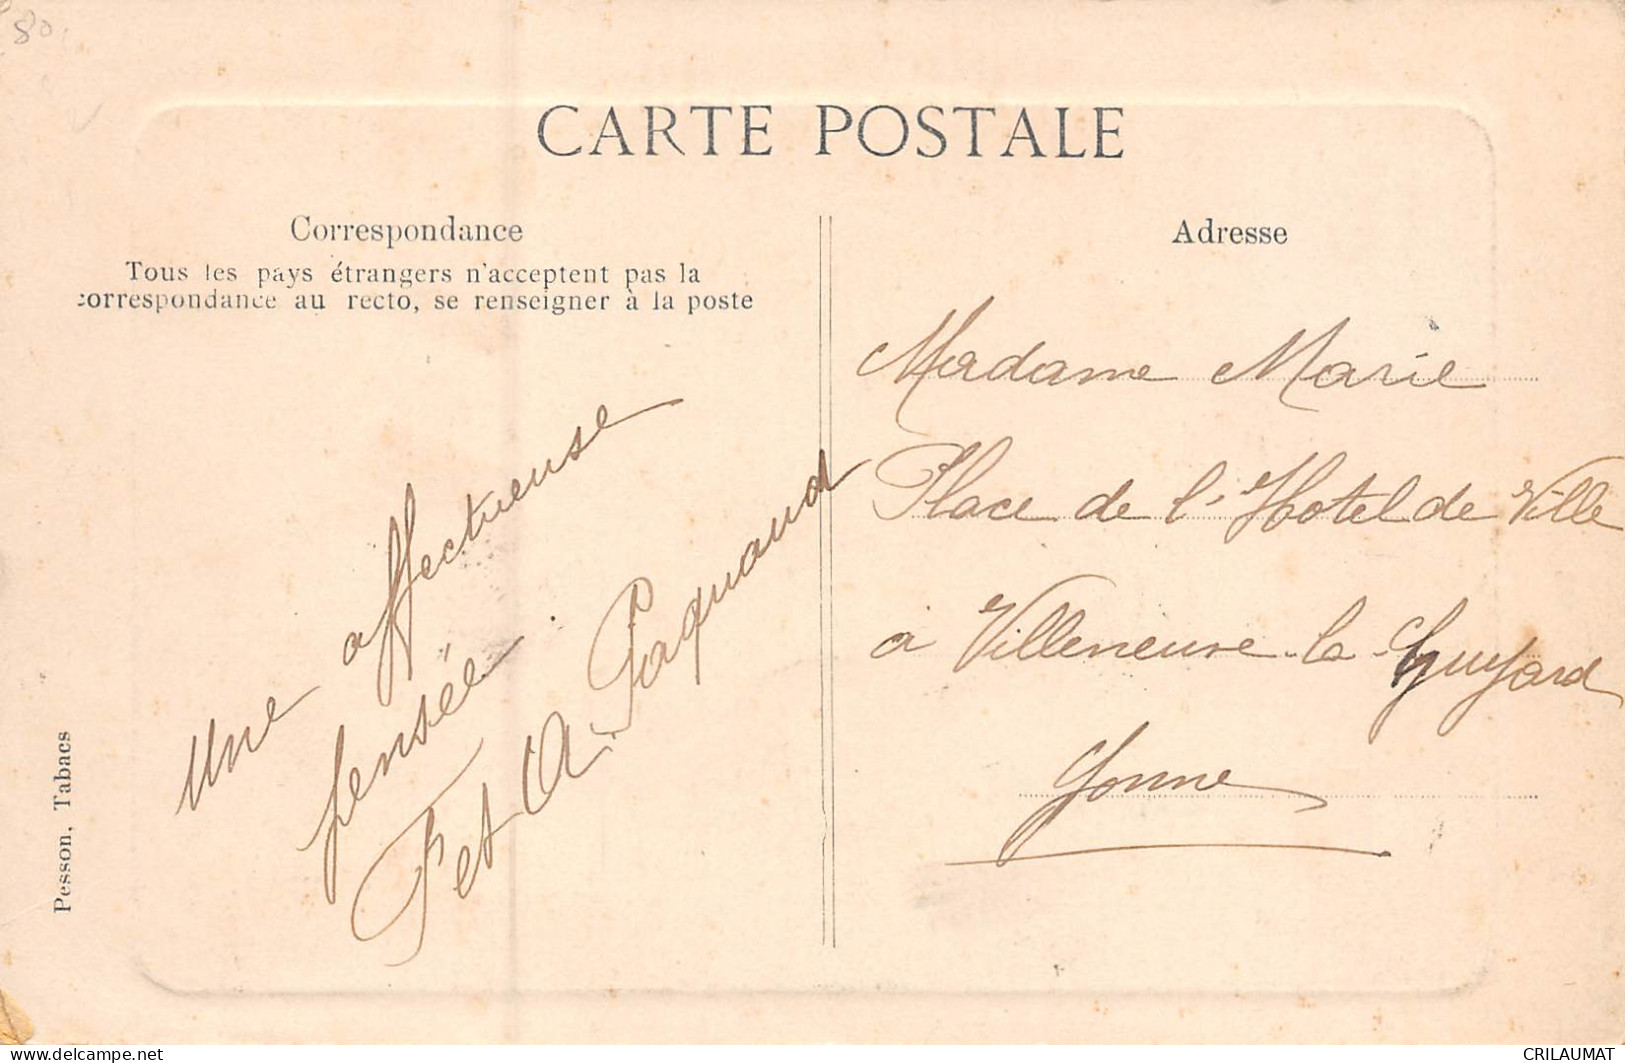 80
CARTE POSTALE
Correspondance
Tous les pays étrangers n'acceptent pas la
correspondance au recto, se renseigner à la poste
Une affectueuse
pensée.
F et A. Paquand
Pesson, Tabacs
Adresse
Madame Marie
Place de l'Hotel de Ville
a Villeneuve la Guyard
Yonne
delcampe.net
CRILAUMAT